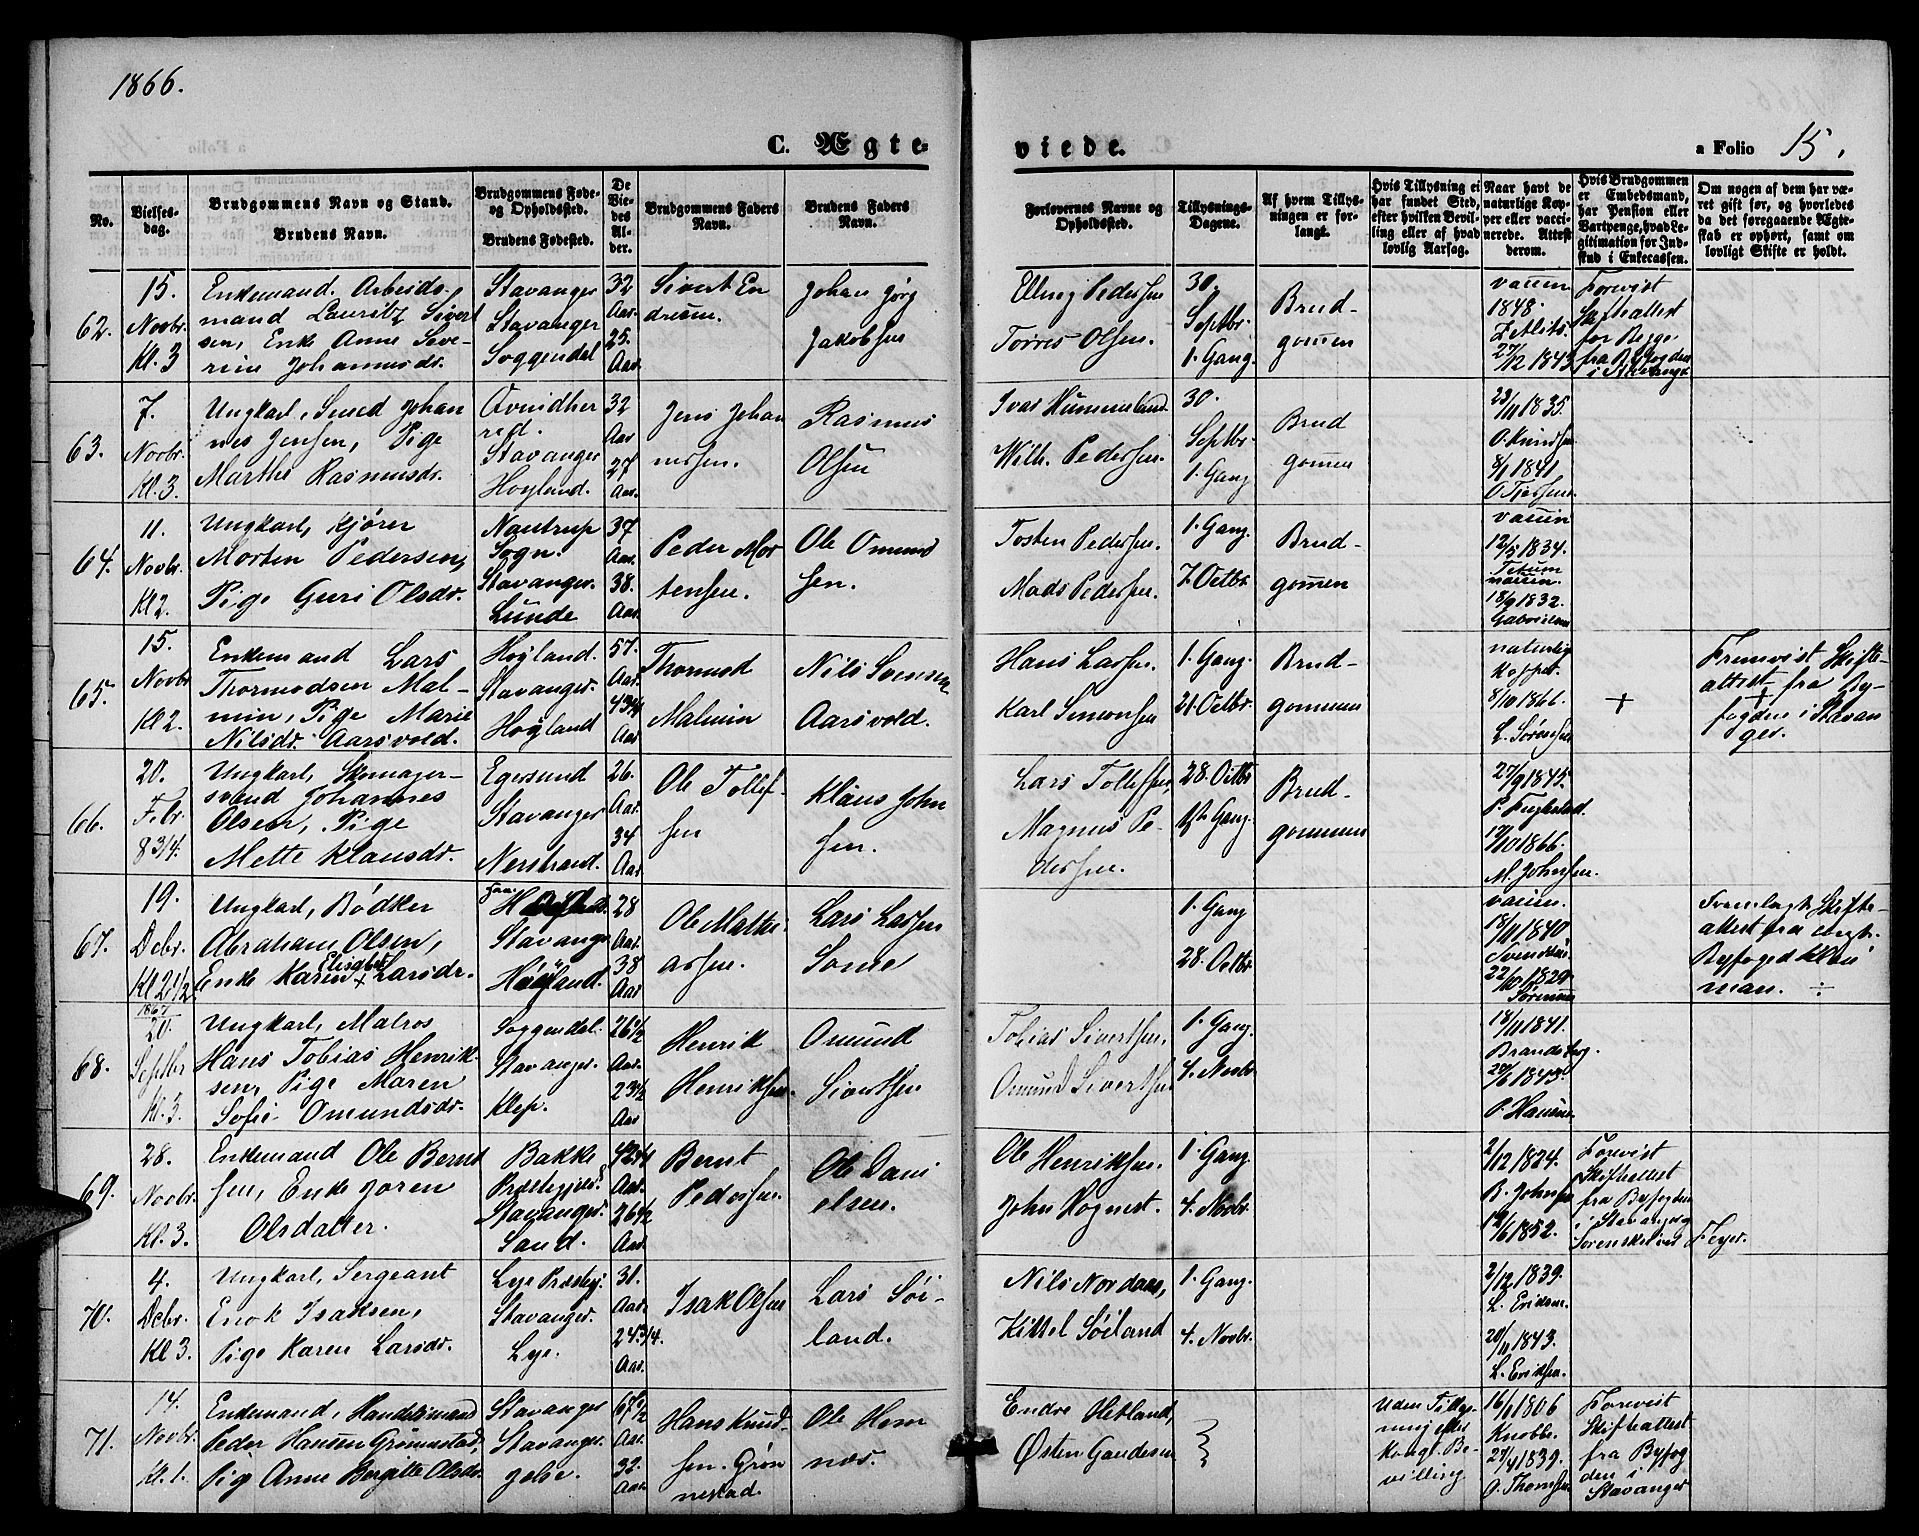 1866.
C. Ægte-
viede.
a Folio 15.
No.
Vielses-
dag.
Brudgommens Navn og Stand.
Brudens Navn.
Brudgommens Føde-
og Opholdssted.
Brudens Fødested.
De
Vie-
des
Al-
der.
Brudgommens Faders
Navn.
Brudens Faders
Navn.
Forlovernes Navne og
Opholdssted.
Tillysnings-
Dagene.
Af hvem Tillys-
ningen er for-
langt.
Hvis Tillysning ei
har fundet Sted,
efter hvilken Bevil-
ling eller af hvad
lovlig Aarsag.
Naar havt de
naturlige Kop-
per eller vacci-
nerede. Attest
derom.
Hvis Brudgommen
er Embedsmand,
har Pension eller
Vartpenge, hvad Le-
gitimation for Ind-
skud i Enkecassen.
Om nogen af dem har væ-
ret gift før, og hvorledes
da det foregaaende Ægte-
skab er ophørt, samt om
lovligt Skifte er holdt.
62.
15.
Novbr.
Kl. 3
Enkemand. Arbeids-
mand Lauritz Sivert
sen, Enke Anne Seve-
rine Johannesdr.
Stavanger
Stavanger
Soggendal
32
Aar.
25.
Aar.
Sivert En
dresen.
Johan Jørg
Jakobsen
Elling Pedersen
Torres Olsen.
30.
Septbr.
1. Gang.
Brud-
gomen
vaccin
1848.
Zetlitz.
27/12 1843
Forevist
Skifteattest
for Begge
fra Byfogden
i Stavanger
63.
7.
Novbr.
Kl. 3.
Ungkarl, Smed Johan
nes Jensen, Pige
Marthe Rasmusdr.
Stavanger
Høyland.
32
Aar
27
Aar.
Jens Johan
nessen.
Rasmus
Olsen
Ivar Hummeland
Wilh. Pedersen.
30.
Septbr.
1. Gang
Brud
gomen
23/11 1835.
O. Knudsen
8/1 1841.
64.
11.
Novbr.
Kl 2.
Ungkarl, Kjører
Morten Pedersen,
Pige Guri Olsdr.
Nautrup
Sogn.
Stavanger.
Lunde
37
Aar.
38.
Aar.
Peder Mor
tensen.
Ole Omund
sen.
Tosten Pedersen.
Mads Pedersen.
1. Gang.
7. Octbr.
Brud-
gomen
vaccin
12/5 1834.
vaccin.
18/9 1832.
65.
15.
Novbr
Kl 2.
Enkemand Lars
Thormodsen Mal-
min, Pige Marie
Nilsdr. Aarsvold.
Høyland.
Stavanger.
Høyland
57.
Aar.
43 3/4
Aar
Thormod
Malmin
Nils Svensen
Aarsvold.
Hans Larsen.
Karl Simonsen
1. Gang.
21. Octbr.
Brud-
gommen
naturlig
Kopper.
8/10 1866.
L. Sørensen
+
Fremvist Skifte-
attest fra By-
fogden i Stavan
ger.
66.
20.
Febr.
8 3/4.
Ungkarl, Skomager-
svend Johannes
Olsen, Pige
Mette Klausdr.
Egersund
Stavanger
Nerstrand.
26.
Aar.
34
Aar
Ole Tollef-
sen
Klaus John
sen.
Lars Tollefsen,
Magnus Pe-
dersen.
28. Octbr
1ste Gang.
Brud-
gommen
27/9 1845.
19/10 1866.
M. Johnsen.
67.
19.
Decbr.
Kl 2 1/2
Ungkarl, Bødker
Abraham Olsen,
Enke Karen Elisabet Larsdr.
Stavanger
Høyland.
28
Aar.
38
Aar
Ole Mathi
assen.
Lars Larsen
Some
1. Gang
28. Octbr.
vaccin.
18/11 1840.
22/10 1829
Fremlagt Skifte-
attest fra
Byfoged Klou
man. ÷
68.
1867
20.
Septbr
Kl. 3.
Ungkarl, Matros
Hans Tobias Henrik-
sen, Pige Maren
Sofie Omundsdr.
Soggendal.
Stavanger.
Klep.
26 1/2
Aar.
23 1/2
Aar
Henrik
Henriksen.
Omund
Sivertsen
Tobias Sivertsen.
Omund Sivertsen
1. Gang.
4. Novbr
18/11 1841.
Brandeberg.
29/6 1843.
P. Hansen
69.
28.
Novbr.
Kl. 3.
Enkemand Ole Bernt
sen, Enke Joren
Olsdatter.
Bakke
Præstegjeld
Stavanger.
Sand.
42 3/4
Aar.
26 1/2
Aar.
Bernt
Pedersen.
Ole Dani
elsen.
Ole Henriksen.
John Hognest.
1. Gang.
4. Novbr.
2/12 1824.
B. Johnsen
19/6 1852.
Forevist
Skifteattest
fra Byfogden
i Stavanger og
Sorenskriver
Feyer.
70.
4.
Decbr.
Kl 3.
Ungkarl, Sergeant
Enok Isaksen,
Pige Karen Larsdr.
Lye Præstegj.
Stavanger.
Lye.
31.
Aar.
24 3/4.
Aar.
Isak Olsen
Lars Søi-
land.
Nils Nordaas,
Kittel Søiland
1. Gang.
4. Novbr.
2/12 1839.
L. Eriksen.
20/11 1843.
L. Eriksen.
71.
14.
Novbr.
Kl. 1.
Enkemand, Handelsmand
Peder Hansen Grønnestad,
Pig Anne Bergitte Olsdr.
Stavanger
Stavanger.
67 1/2
Aar.
32.
Aar.
Hans Knud-
sen. Grøn
nestad.
Ole Hem
næs.
Endre Hetland,
Østen Gaudesen
Uden Tillys-
ning efter
Kongl. Be-
villing.
16/1 1806
Knobbe.
27/4 1839.
O. Thomsen
Forevist
Skifteattest
fra Byfog
den i
Stavanger